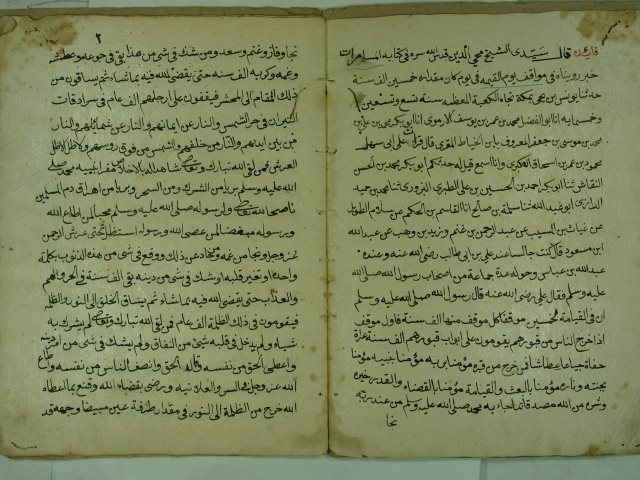 فائدة قال سيدي الشيخ محي الدين قدس الله سره في كتابه المسامرات
خبر رويناه في مواقف يوم القيمة في يوم كان مقداره خمسين الف سنة
حدثنا يونس بن يحي بمكة تجاه الكعبة المعظمة سنة تسع وتسعين
وخمسماية انا ابو الفضل محمد بن عمر بن يوسف الارموي انا ابو بكر محمد بن علي بن
محمد بن موسى بن جعفر المعروف بابن الخياط المقري قال قرات على ابي سهل
محمود بن عمر بن اسحاق العكبري وانا اسمع قيل له حدثكم ابو بكر محمد بن الحسن
النقاش ثنا ابو بكر احمد بن الحسين بن علي الطبري ثنا محمد بن حميد
الرازي ابو عبد الله ثنا سلمة بن صالح انا القاسم بن الحكم عن سلام الطويل
عن غياث بن المسيب عن عبد الرحمن بن غنم وزيد بن وهب عن عبد الله
ابن مسعود قال كنت جالسا عند علي بن ابي طالب رضي الله عنه وعنده
عبد الله بن عباس وحوله عدة جماعة من اصحاب رسول الله صلى الله
عليه وسلم فقال علي رضي الله عنه قال رسول الله صلى الله عليه وسلم
ان في القيامة لخمسين موقفا كل موقف منها الف سنة فاول موقف
اذا خرج الناس من قبورهم يقومون على ابواب قبورهم الف سنة عراة
حفاة جياعا عطاشا فمن خرج من قبره مؤمنا بربه مؤمنا بنبيه مؤمنا
بجنته وناره مؤمنا بالبعث والقيامة مؤمنا بالقضاء والقدر خيره
وشره من الله مصدقا بما جاء به محمد صلى الله عليه وسلم من عند ربه
نجا
٢
نجا وفاز وغنم وسعد ومن شك في شئ من هذا بقي في جوعه وعطشه
وغمه وكربه الف سنة حتى يقضي الله فيه بما شاء ثم يساقون من
ذلك المقام الى المحشر فيقفون على ارجلهم الف عام في سرادقات
النيران في حر الشمس والنار عن ايمانهم والنار عن شمائلهم والنار
من بين ايديهم والنار من خلفهم والشمس من فوق روسهم ولا ظل الا ظل
العرش فمن لقي الله تبارك وتعالى شاهدا له بالاخلاص مقرا بنبيه محمد صلى
الله عليه وسلم بريا من الشرك ومن السحر وبريا من اهراق دم المسلمين
ناصحا لله تعالى ولرسوله صلى الله عليه وسلم محبا لمن اطاع الله
ورسوله مبغضا لمن عصى الله ورسوله استظل تحت عرش الرحمن
عز وجل ونجا من غمه ومن حاد عن ذلك ووقع في شئ من هذه الذنوب بكلمة
واحدة او تغير قلبه او شك في شئ من دينه بقي الف سنة في الحر والهم
والعذاب حتى يقضي الله فيه بما شاء ثم يساق الخلق الى النور والظلمة
فيقومون في تلك الظلمة الف عام فمن لقي الله تبارك وتعالى لم يشرك به
شيا ولم يدخل في قلبه شئ من النفاق ولم يشك في شئ من امر دينه
واعطى الحق من نفسه وقال الحق وانصف الناس من نفسه واطاع
الله عز وجل في السر والعلانية ورضي بقضاء الله وقنع بما اعطاه
الله خرج من الظلمة الى النور في مقدار طرفة عين مبيضا وجهه وقد